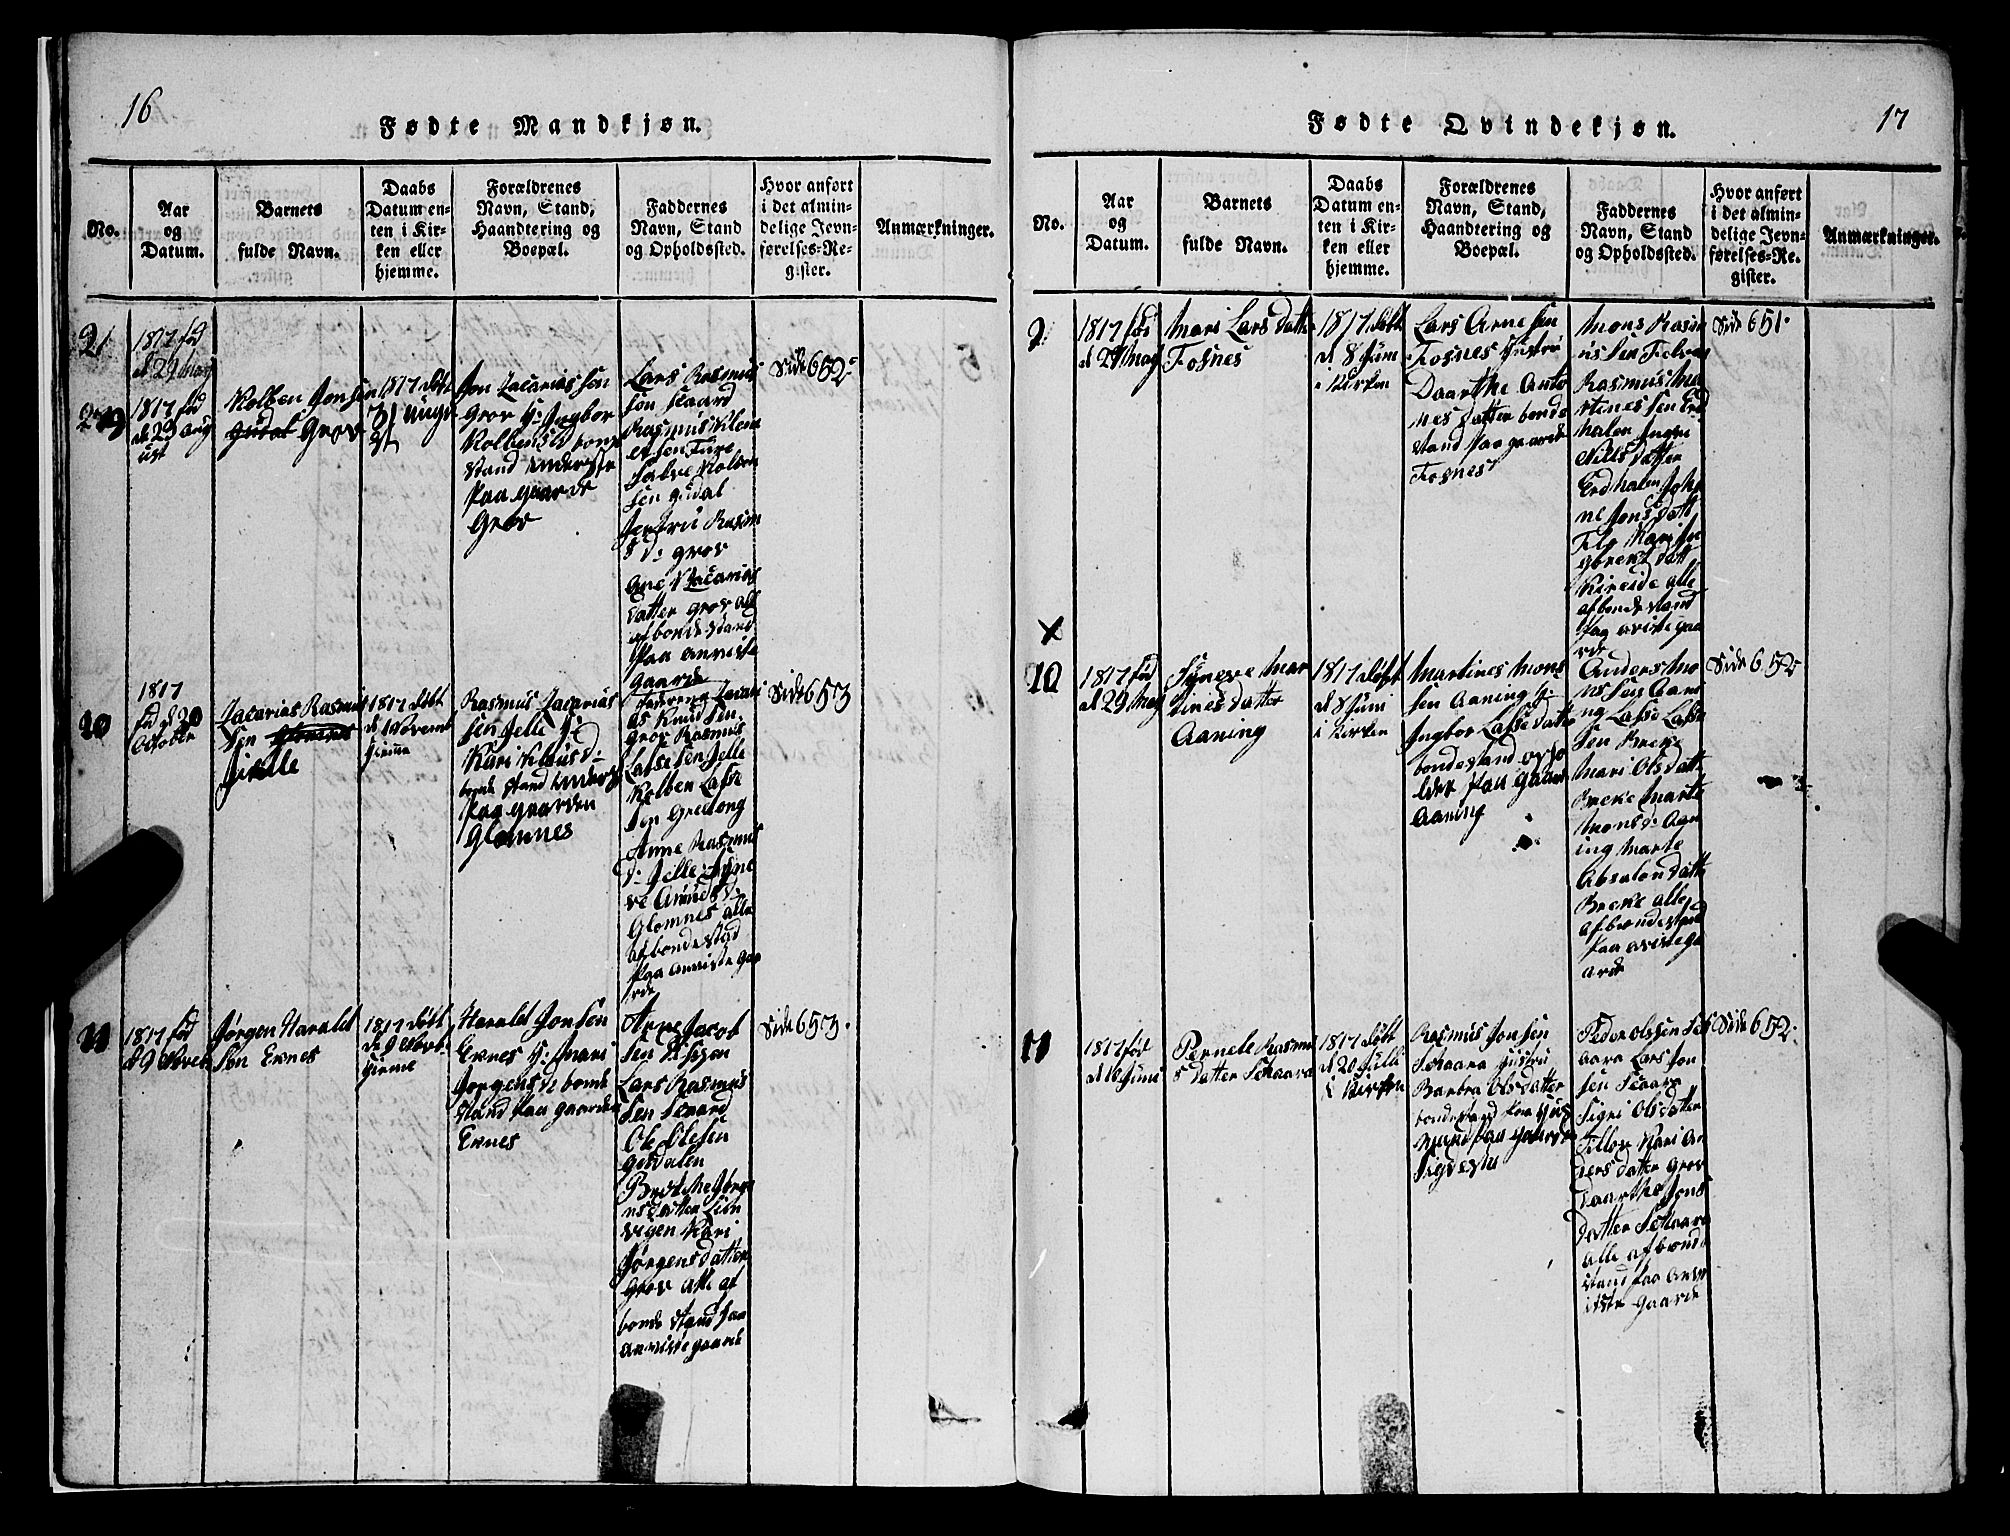 16
Fødte Mandkjøn.
No.
Aar
og
Datum.
Barnets
fulde Navn.
Daabs
Datum en-
ten i Kir-
ken eller
hjemme.
Forældrenes
Navn, Stand,
Haandtering og
Boepæl.
Faddernes
Navn, Stand
og Opholdssted.
Hvor anført
i det almin-
delige Jevn-
førelses-Re-
gister.
Anmærkninger.
1817 fød
d 29 May
1817 fød
d 29 aug
ust
Kolben Jonsen
Gudal Grov
1817 døbt
31 Augu
Jon Zacariassen
Grov H: Ingbor
Kolbens D bonde
stand
paa gaarde
Grov
Lars Rasmus
sen
Rasmus Klem
etsen Fure
Salve Kolben
sen Gudal
Jertru Rasm
s D: Grov
Ane Zacarias
datter Grov alle
af bondestand
paa anviste
gaarde
Side 652
10
1817
fød d 20
October
Zacarias Rasmus
sen Glomnes
Jelle
1817 døbt
d 1 Novemb
hjemme
Rasmus Zacarias
sen Jelle H:
Kari Klaus D:
bonde stand
paa gaarden
Glomnes
Zacari
as Knudsen
Grov Rasmus
Lassesen Jelle
Kolben Lasse
sen
Anne Rasmus
D: Jelle Syne
ve Anders D:
Glomnes alle
af bondestad
paa anviste gaa
rde
Side 653
11
1817 fød
d 9 Noveb
Jørgen Harald
sen Exnes
1817 døbt
d 9 Novb
hieme
Harald Jonsen
Exnes H: Mari
Jørgens D bonde
stand paa gaarden
Exnes
Arne Jacob
sen
Lars Rasmus
sen
Ole Olesen
Gjesdalen
Jørge
nsdatter
vigen Kari
Jørgensdatter
Grov alle af
bonde stand paa
anviste gaarde
Side 653.
17
Fødte Qvindekjøn.
No.
Aar
og
Datum.
Barnets
fulde Navn.
Daabs
Datum en-
ten i Kir-
ken eller
hjemme.
Forældrenes
Navn, Stand,
Haandtering og
Boepæl.
Faddernes
Navn, Stand
og Opholdssted.
Hvor anført
i det almin-
delige Jevn-
førelses-Re-
gister.
Anmærkninger.
9
1817 fød
d 29 May
Mari Larsdatter
Fosnes
1817 døbt
d 8 Juni
i Kirken
Lars Arnesen
Fosnes Hustru
Daarthe Anto
nesdatter bonde
stand paa gaarde
Fosnes
Mons Rasm
ussen
Rasmus Ma
rtinessen Erd
halen Ingri
Nillsdatter
Erdhalen Joha
ne Jonsdatt
Kari In
gbrektdatt
alle
af bondestand
paa aviste gaa
rde
Side 651.
X
10
1817 fød
d 29 May
Syneve Mar
tinesdatter
Aaning
1817 døbt
d 8 Juni
i Kirken
Martines Mons
sen Aaning H:
Ingbor Lassedatter
bondestand
paa gaarde
Aaning
Anders Mo
nssen Aani
ng Lasse Lasse
sen Breke
Mari Olsdatt
Breke Marte
Mons D: Aan
ing Marte
Absalondatt
Breke alle
af bondestand
paa aviste ga
arde
Side 652
11
1817 fød
d 16 Juni
Pernele Rasmu
sdatter Schaara
1817 døbt
d 20 Juli
i Kirken
Rasmus Jonsen
Schaara Hustru
Barbra Olsdatter
bondestand paa
Peder Olssen Sch
aara Lars Jon
sen Scaara
Sigri Olsdatter
Kari An
dersdatter Grov
Daarthe Jens
datter Schaara
alle af bonde
stand paa Anv
iste gaarde
Side 652.